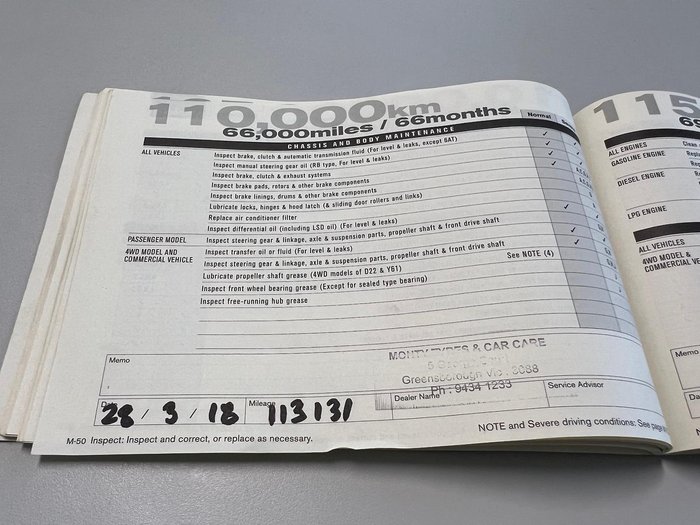 110,000km
66,000miles / 66months
Normal
CHASSIS AND BODY MAINTENANCE
ALL VEHICLES
Inspect brake, clutch & automatic transmission fluid (For level & leaks, except 6AT)
Inspect manual steering gear oil (RB type, For level & leaks)
Inspect brake, clutch & exhaust systems
Inspect brake pads, rotors & other brake components
Inspect brake linings, drums & other brake components
Lubricate locks, hinges & hood latch (& sliding door rollers and links)
Replace air conditioner filter
Inspect differential oil (including LSD oil) (For level & leaks)
PASSENGER MODEL Inspect steering gear & linkage, axle & suspension parts, propeller shaft & front drive shaft
4WD MODEL AND COMMERCIAL VEHICLE
Inspect transfer oil or fluid (For level & leaks)
Inspect steering gear & linkage, axle & suspension parts, propeller shaft & front drive shaft
Lubricate propeller shaft grease (4WD models of D22 & Y61) See NOTE (4)
Inspect front wheel bearing grease (Except for sealed type bearing)
Inspect free-running hub grease
Memo
MONTY TYRES & CAR CARE
Greensborough Vic. 3088
Ph: 9434 1233
Date 28 / 3 / 18 Mileage 113131 Dealer Name Service Advisor
M-50 Inspect: Inspect and correct, or replace as necessary.
NOTE and Severe driving conditions: See page
115
ALL ENGINES Clean
GASOLINE ENGINE
DIESEL ENGINE
LPG ENGINE
ALL VEHICLES
4WD MODEL &
COMMERCIAL
Memo